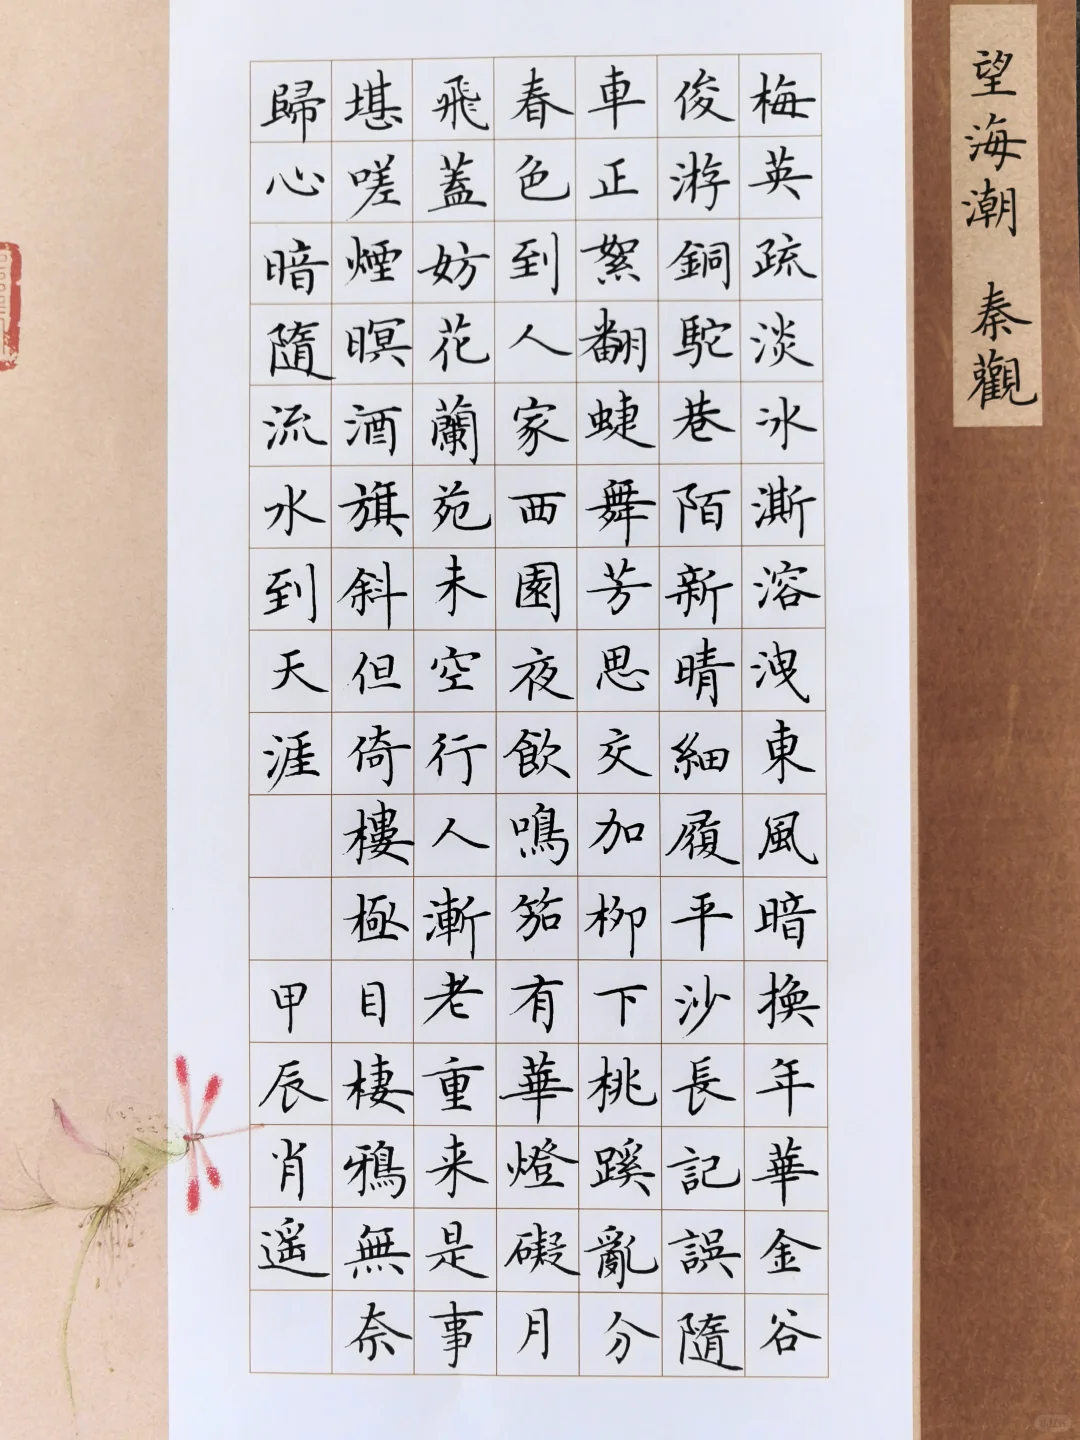 望海潮 秦觀
梅英疏淡冰澌溶洩東風暗換年華金谷
俊游銅駝巷陌新晴細履平沙長記誤隨
車正絮翻蜨舞芳思交加柳下桃蹊亂分
春色到人家西園夜飲鳴笳有華燈礙月
飛蓋妨花蘭苑未空行人漸老重来是事
堪嗟煙暝酒旗斜但倚樓極目棲鴉無奈
歸心暗隨流水到天涯 甲辰肖遥